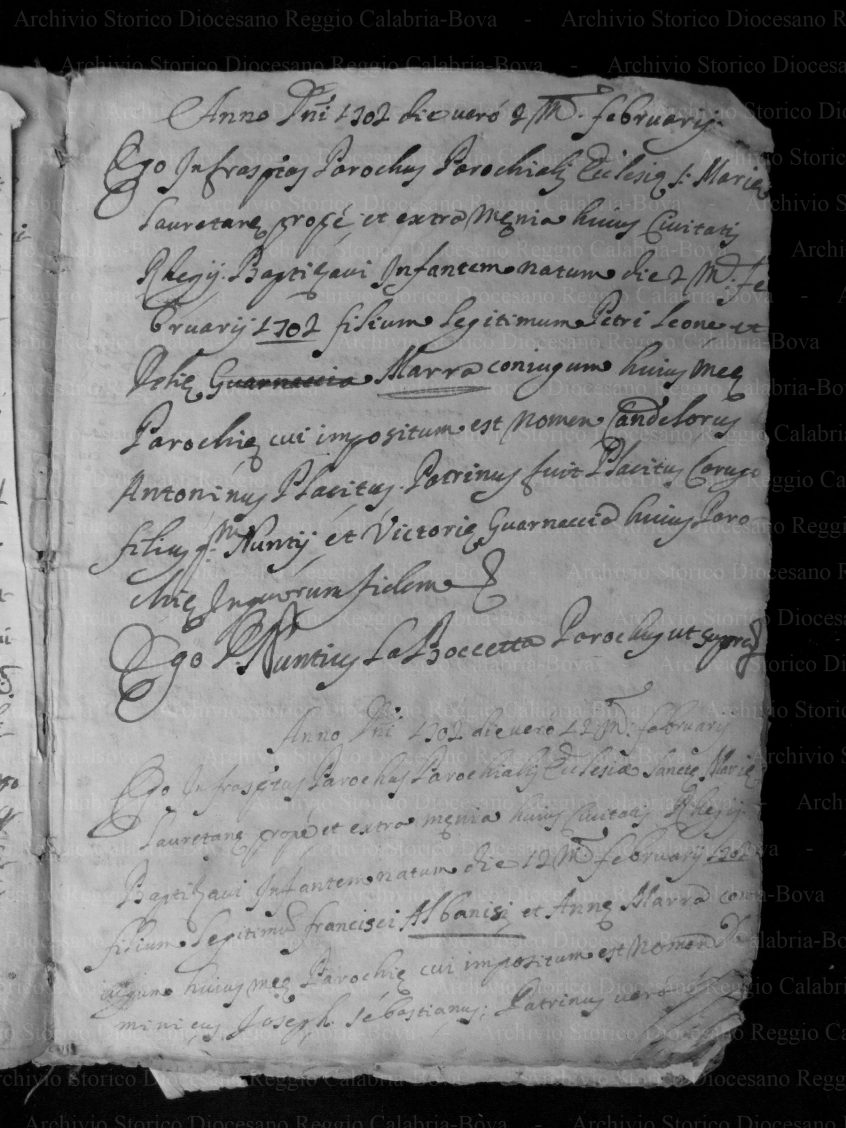 Anno Dñi 1702 die verò 2 M. februarij
Ego Infrasptus Parochus Parochialis Ecclesię S. Marię
Lauretanę propè et extra Męnia huius Civitatis
Rhegij Baptizavi Infantem natum die 2 M. fe
bruarij 1702 filium legitimum Petri Leone et
Guarnaccia Marra coniugum huius meę
Parochię cui impositum est Nomen Candelorus
Antoninus Placitus. Patrinus fuit Placitus
filius qm. Nuntij et Victorię Guarnaccia huius Paro
chię In quorum fidem
Ego D. Nuntius La Boccetta Parochus ut supra
Anno Dñi 1702 die verò 12 M. februarij
Ego Infrasptus Parochus Parochialis Ecclesiæ Sanctę Marię
Lauretanę propè et extra męnia huius Civitatis Rhegij
Baptizavi Infantem natum die 12 M. februarij 1702
filium legitimum francisci Albanisi et Annę Marra coni
ugum huius meę Parochię cui impositum est Nomen Do
minicus Joseph Sebastianus; Patrinus verò